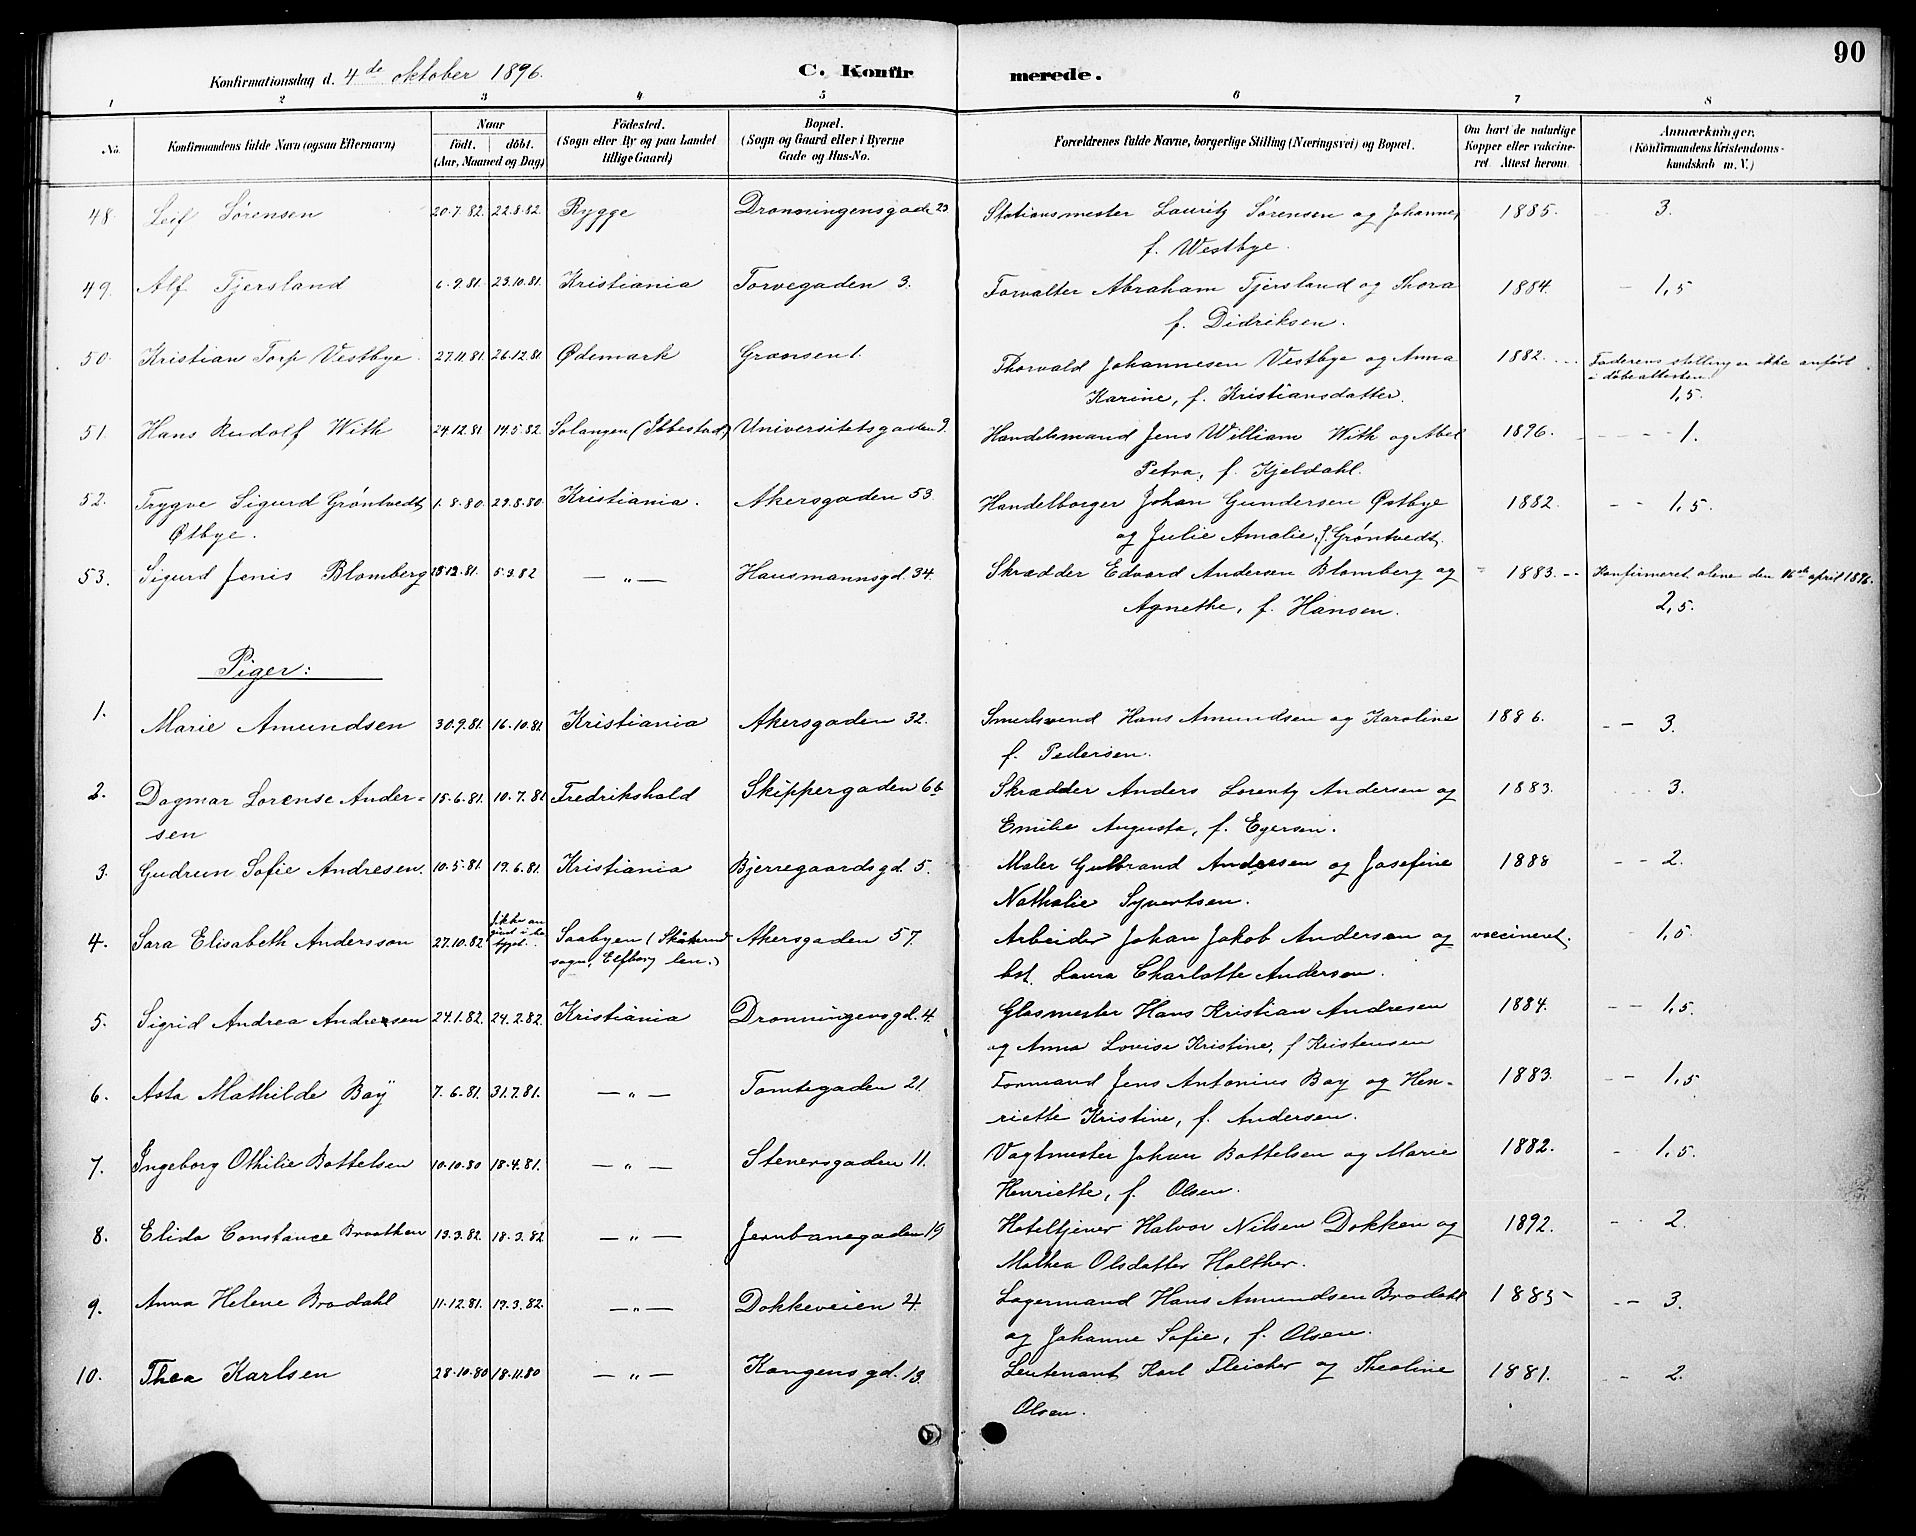 90
Konfirmationsdag d. 4de oktober 1896. C. Konfir merede.
1 2 3 4 5 6 7 8
No. Konfirmandens fulde Navn (ogsaa Efternavn) Naar født. døbt. (Aar, Maaned og Dag) Fødested. (Sogn eller By og paa Landet tillige Gaard) Bopæl. (Sogn og Gaard eller i Byerne Gade og Hus-No. Forældrenes fulde Navne, borgerlige Stilling (Næringsvei) og Bopæl. Om havt de naturlige Kopper eller vakcineret. Attest herom. Anmærkninger. (Konfirmandens Kristendomskundskab m. V.)
48. Leif Sørensen 20.7.82. 22.8.82. Rygge Dronningensgade 23 Stationsmester Lauritz Sørensen og Johanne, 1885. 3.
f. Westbye.
49. Alf Tjersland 6.9.81. 23.10.81. Kristiania Torvegaden 3. Forvalter Abraham Tjersland og Thora 1884. – 1,5
f. Didriksen.
50. Kristian Torp Vestbye. 27.11.81. 26.12.81. Ødemark Grænsen 1. Thorvald Johannesen Vestbye og Anna 1882. Faderens stilling er ikke anført
i døbeattesten
Karine, f. Kristiansdatter. 1,5.
51. Hans Rudolf With 24.12.81 14.5.82. Salangen (Ibbestad) Universitetsgaden 9. Handelsmand Jens William With og Abel 1896. 1.
Petra, f. Kjeldahl.
52. Trygve Sigurd Grøntvedt 1.8.80. 29.8.80 Kristiania. Akersgaden 53. Handelborger Johan Gundersen Østbye 1882. – – 1,5.
Østbye. og Julie Amalie, f. Grøntvedt.
53. Sigurd Jenis Blomberg 5.3.82 — „ — Hausmannsgd. 34. Skrædder Edvard Andersen Blomberg og 1883. Konfirmeret alene den 16de april 1896.
Agnethe, f. Hansen. 2,5.
Piger:
1. Marie Amundsen 30.9.81. 16.10.81. Kristiania Akersgaden 32. Smedsvend Hans Amundsen og Karoline 1886. – – 3.
f. Pedersen.
2. Dagmar Lorense Ander- 15.6.81. 10.7.81 Fredrikshald Skippergaden 6b Skrædder Anders Lorentz Andersen og 1883. 3.
sen Emilie Augusta, f. Egersen.
3. Gudrun Sofie Andresen. 10.5.81. 19.6.81. Kristiania Bjerregaardsgd. 5. Maler Gulbrand Andresen og Josefine 1888 – – 2.
Nathalie Syvertsen.
4. Sara Elisabeth Andersson 27.10.82. Saabyen ( Akersgaden 57. Arbeider Johan Jakob Andersson og vaccineret. 1,5.
sogn, Elfborg len.) hst. Laura Charlotte Anderson.
5. Sigrid Andrea Andresen 24.1.82. 24.2.82. Kristiania Dronningensgd. 4. Glasmester Hans Kristian Andresen 1884. – – 1,5.
og Anna Lovise Kristine, f. Kristensen
6. Asta Mathilde Bay 7.6.81. 31.7.81. — „ — Tomtegaden 21. Formand Jens Antonius Bay og Hen- 1883. – – 1,5
riette Kristine, f. Andersen.
7. Ingeborg Othilie Bottelsen 10.10.80 18.4.81. — „ — Stenersgaden 11. Vagtmester Johan Bottelsen og Marie 1882. – 1,5.
Henriette, f. Olsen.
8. Elida Constance Braathen 13.3.82. 18.3.82 — „ — Jernbanegaden 19 Hoteltjener Halvor Nilsen Dokken og 1892. – – 2.
Mathea Olsdatter Holther.
9. Anna Helene Brodahl 11.12.81. 19.3.82. — „ — Dokkeveien 4. Lagermand Hans Amundsen Brodahl 1885 – – 3.
og Johanne Sofie, f. Olsen.
10. Thea Karlsen 28.10.80 18.11.80 — „ — Kongensgd. 13. Leutenant Karl Fleicher og Theoline 1881. – 2.
Olsen.